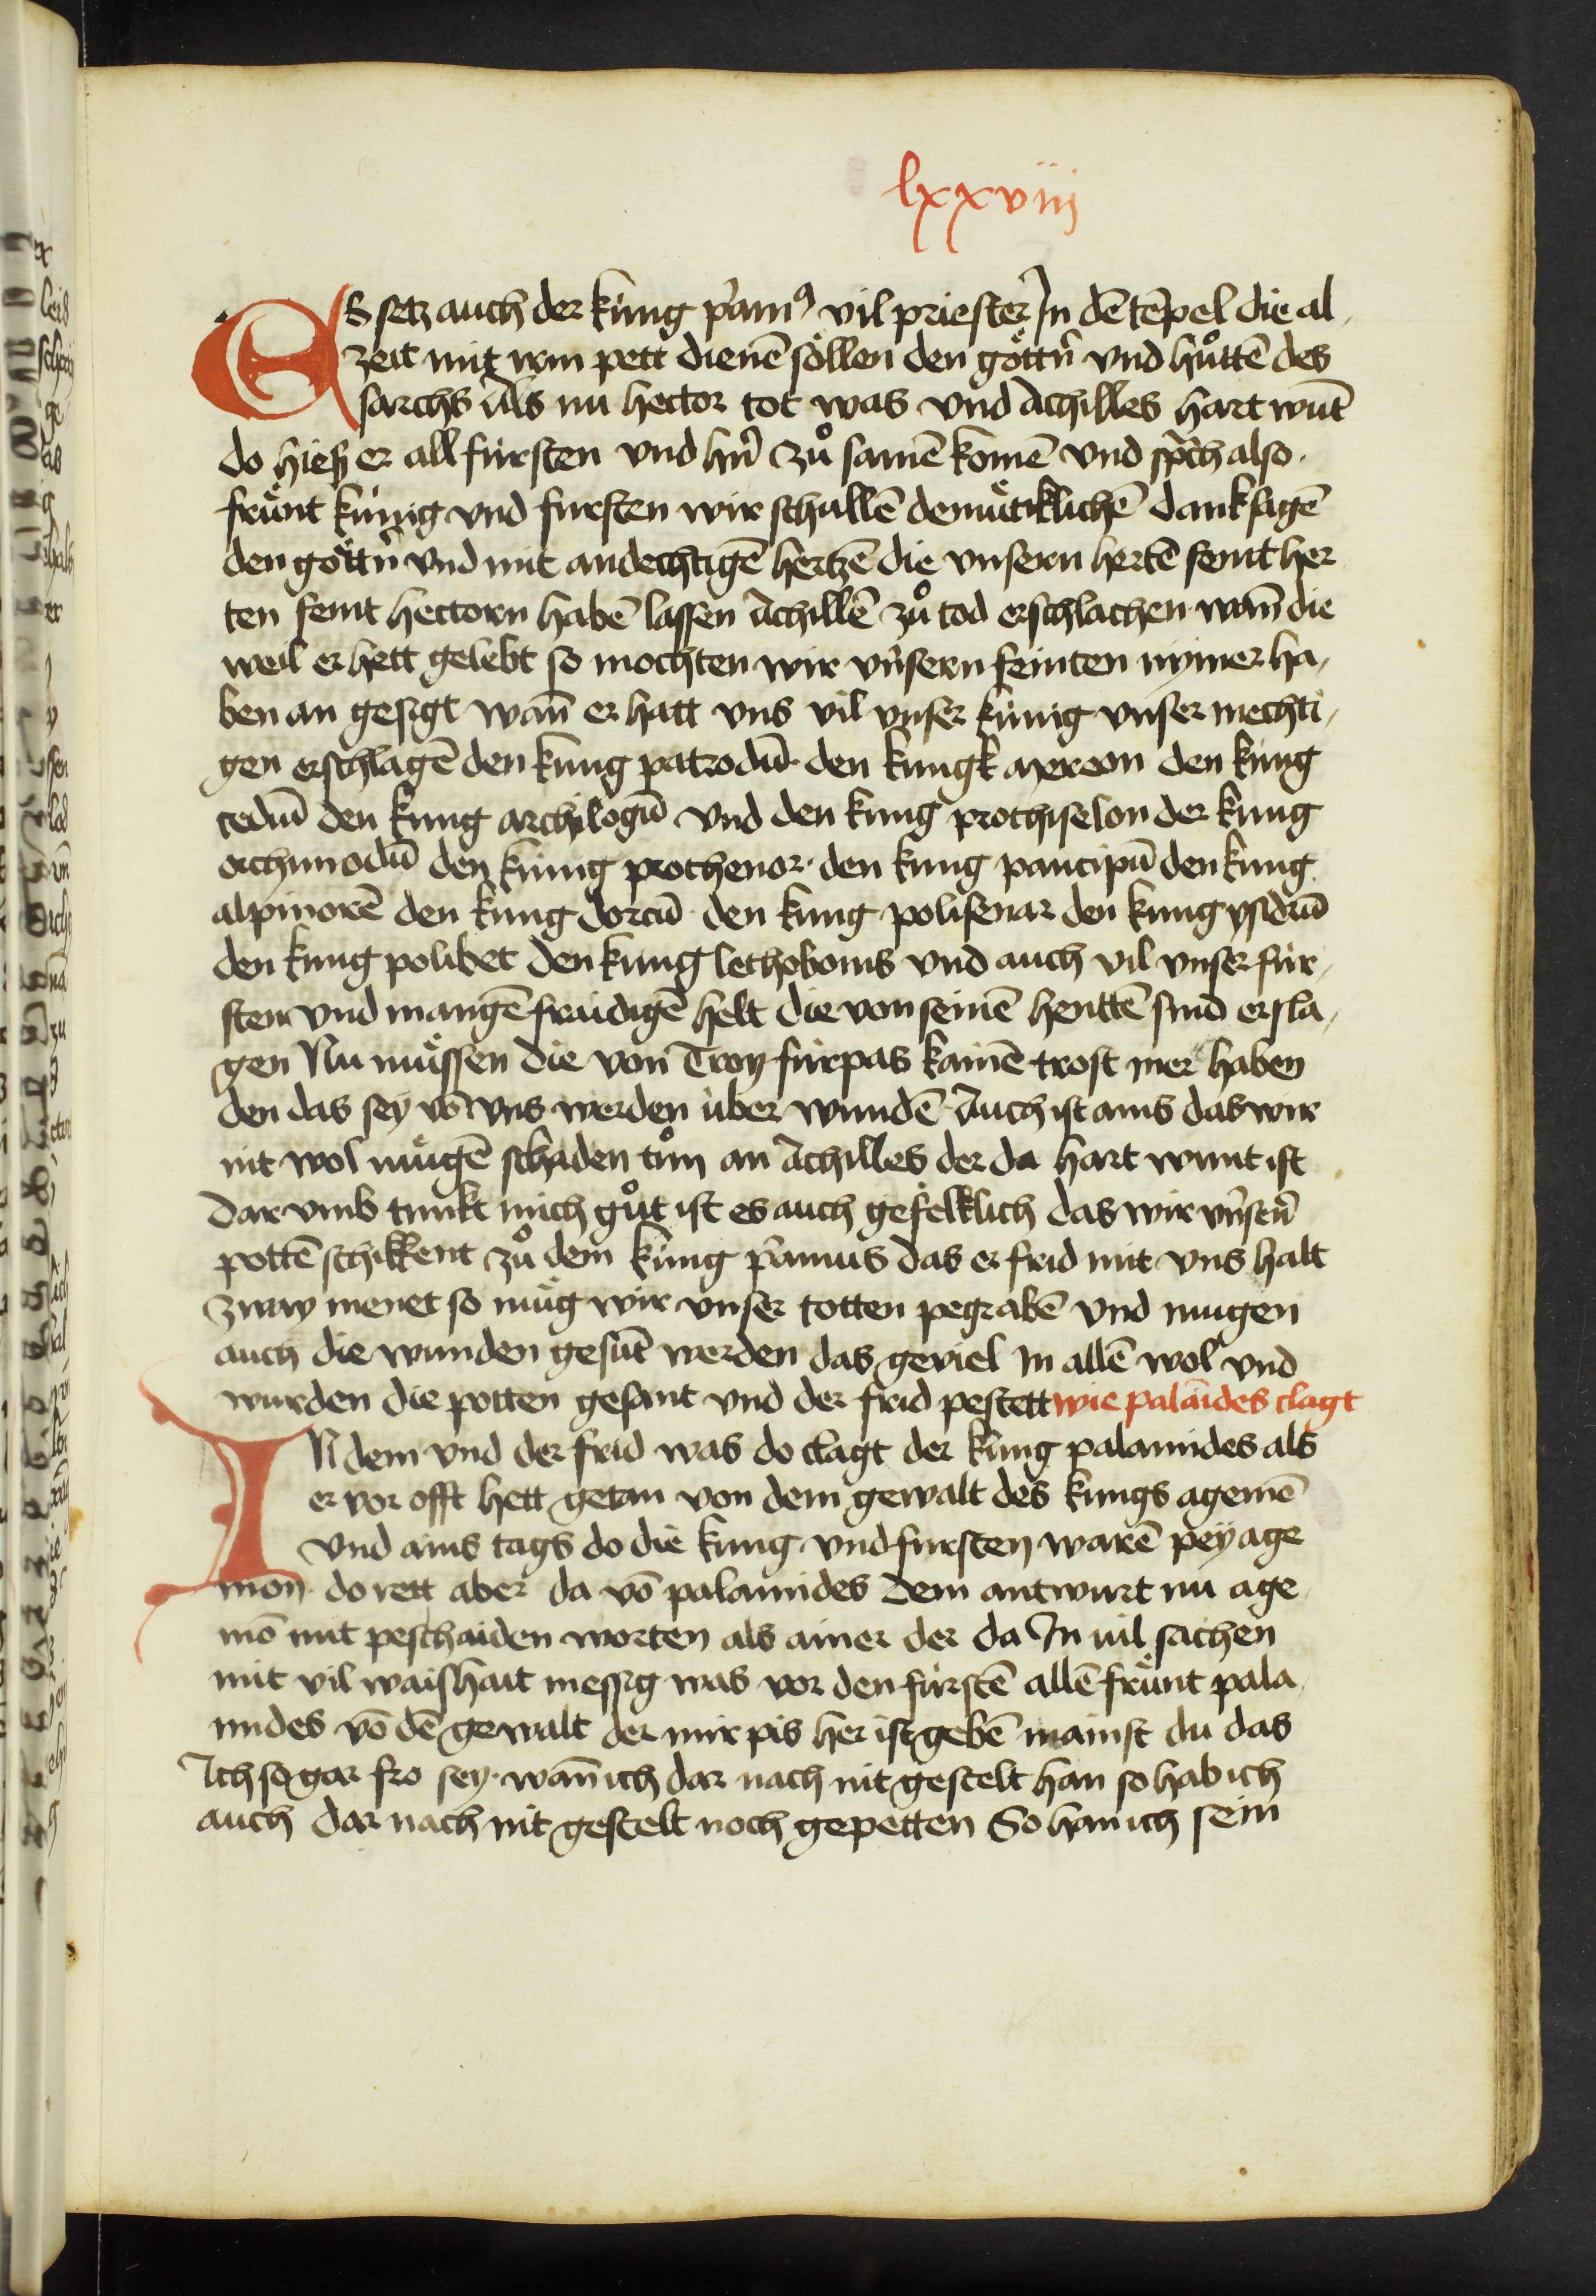 lxxviij
ES setz auch der kúnig p̉am⁹ vil priester In dē tēpel die al-
zeit mit irm pett dienē söllen den göttn̄ vnd hůttē des
sarchs Als nu hector tot was vnd Achilles hart wūt
do hieß er all fúrsten vnd hn̄ zů samē komē vnd sp̄ch also.
frúnt kúnig vnd fursten wir schullē demuͤtiklichē dank sagē
den göttn̄ vnd mit andechtigē hertzē die vnsern hertē feint her
ten feint hectorn habē lassen Achillē zů tod erschlachen wan̄ die
weil er hett gelebt so mochten wir vnsern feinten nymer ha-
ben an gesigt wan̄ er hatt vns vil vnser kúnig vnser mechti-
gen erschlagē den kung patrodū den kungk mereon den kúng
cedū den kung archilogū vnd den kung prothiselon der kung
orchimodū den kúnig prothenor. den kung pancipū den kung
alpinorē den kung dorcū den kung polisenar den kung ysidrū
den kung polibet den kung lethobonis vnd auch vil vnser fúr-
sten vnd mangē fraidigē helt die von seinē henttē sind ersla-
gen Nu muͤssen die von Troy fúrpas kainē trost mer haben
den das sey vō vns werden úber wundē Auch ist ains das wir
nit wol muͤgē schaden tůn an Achilles der da hart wunt ist
Dar vmb tunkt mich gůt ist es auch gefelklich das wir vnstn̄
pottē schikkent zů dem kúng p̉amus das er frid mit vns halt
zway menet so muͤg wir vnser totten pegrabē vnd mugen
auch die wunden gesūt werden das geviel In allē wol vnd
wurden die potten gesant vnd der frid pestett wie palāides clagt
IN dem vnd der frid was do clagt der kúng palamides als
er vor offt hett getan von dem gewalt des kungs agemē
Vnd ains tags do die kung vnd fursten warē pey age
mon do rett aber da vō palamides dem antwurt nu age
mō mit peschaiden worten als ainer der da In vil sachen
mit vil waishait messig was vor den fúrstē allē fruͤnt pala
mides vō dē gewalt der mir pis her ist gebē mainst du das
Ich so gar fro sey. wan̄ ich dar nach nit gestelt han so hab ich
auch dar nach nit gestelt noch gepetten So han ich sein